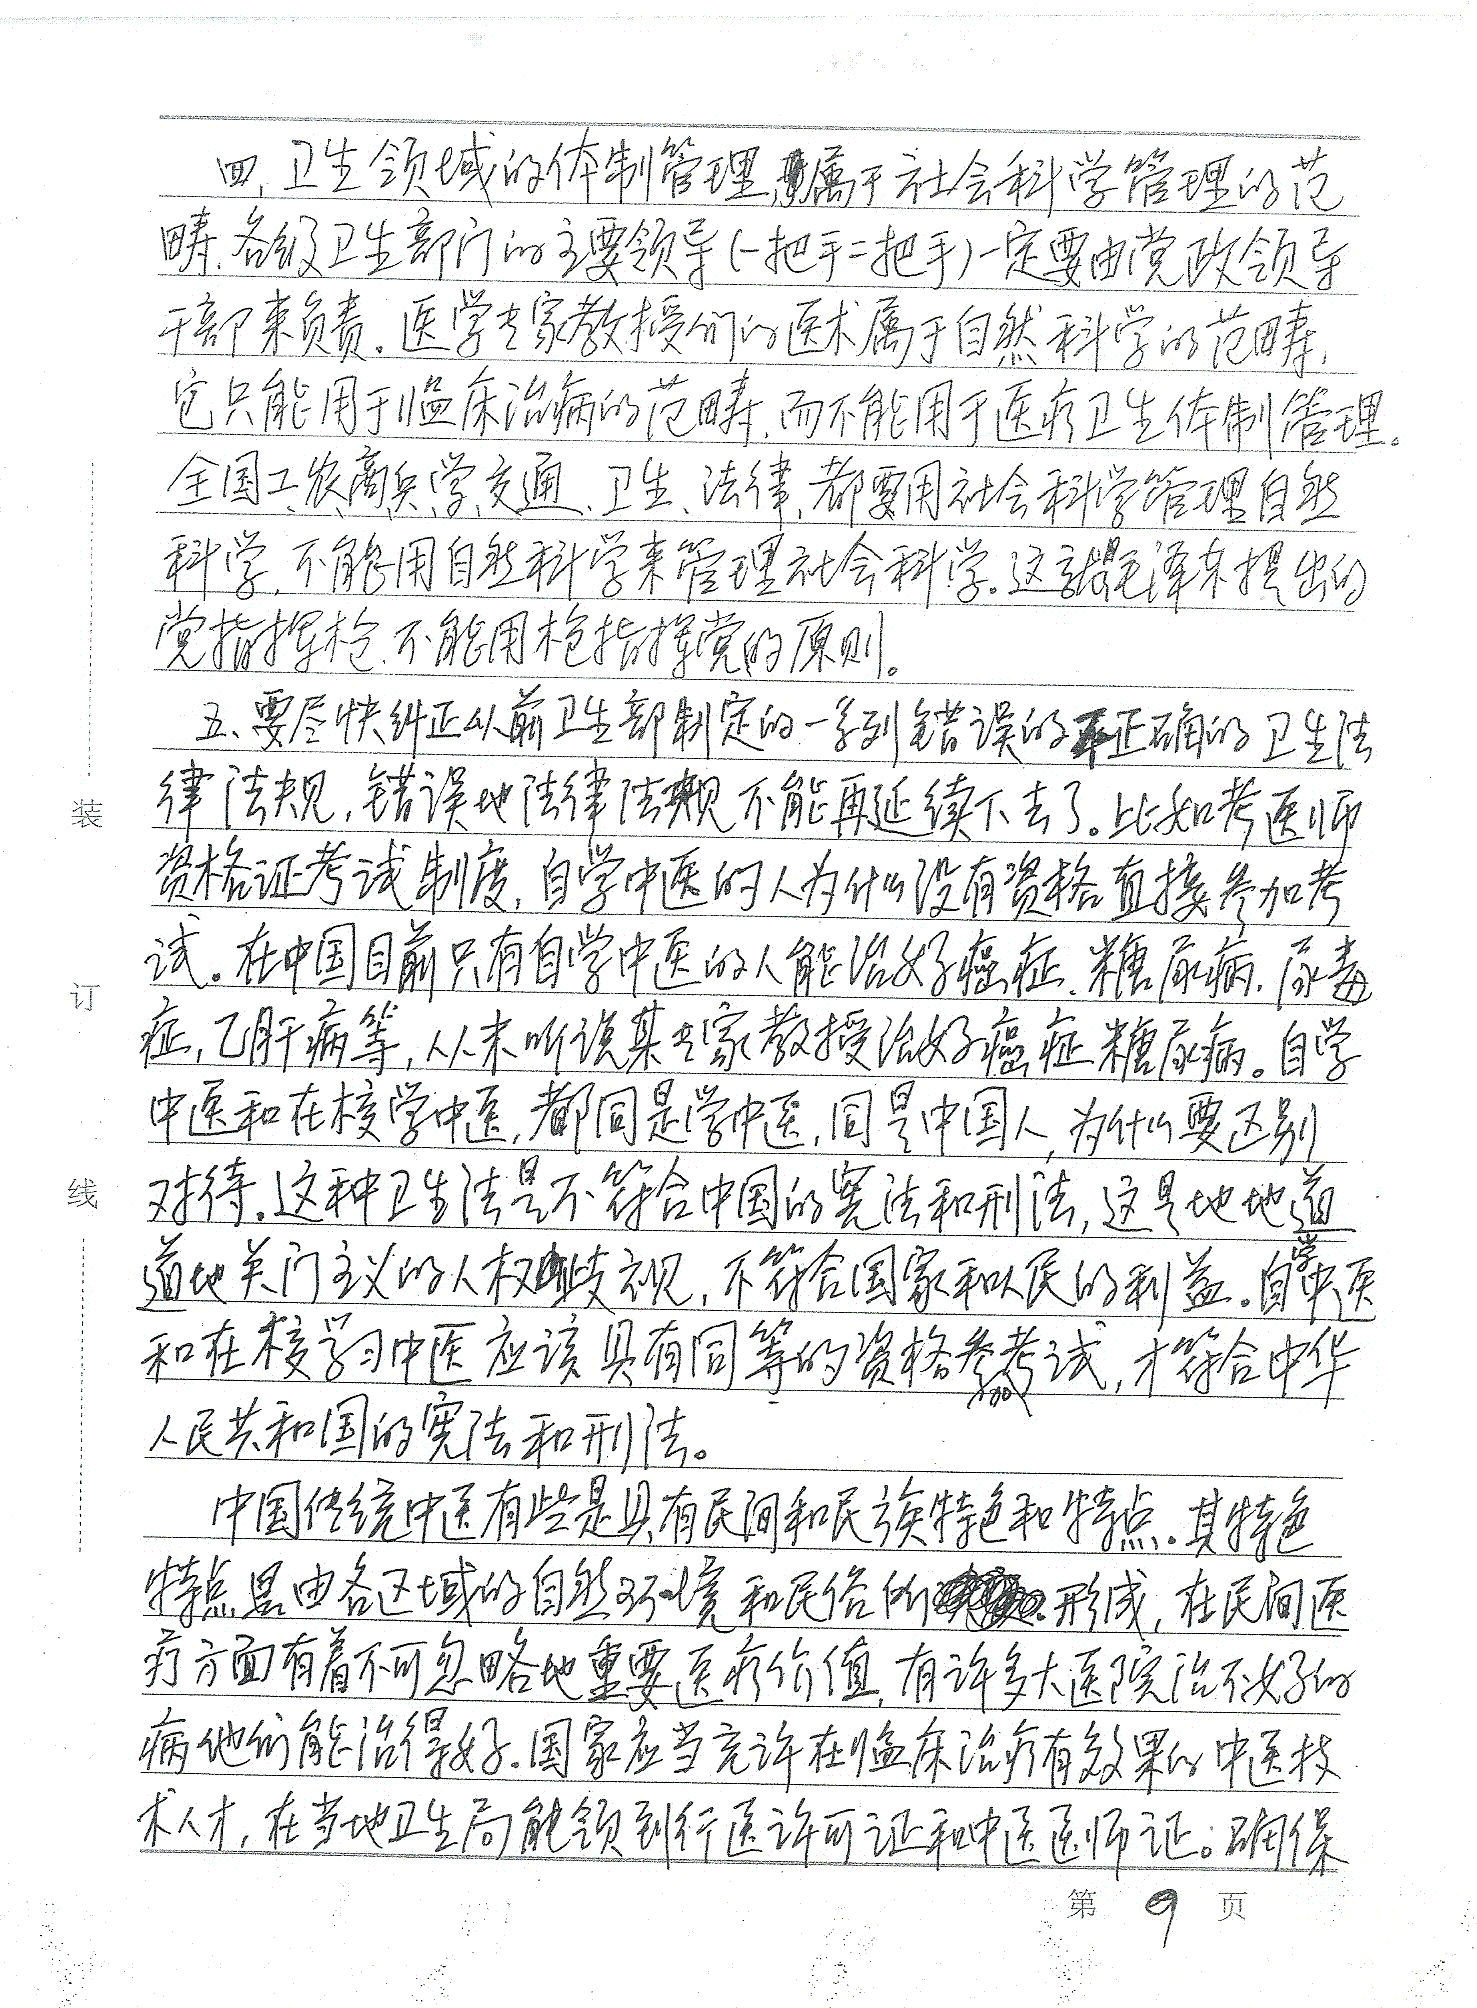 四、卫生领域的体制管理,属于社会科学管理的范
畴.各级卫生部门的主要领导(一把手二把手)一定要由党政领导
干部来负责。医学专家教授们的医术属于自然科学的范畴,
它只能用于临床治病的范畴,而不能用于医疗卫生体制管理。
全国工、农、商、兵、学、交通、卫生、法律、都要用社会科学管理自然
科学,不能用自然科学来管理社会科学。这就是毛泽东提出的
党指挥枪.不能用枪指挥党的原则。
五、要尽快纠正从前卫生部制定的一系列错误的不正确的卫生法
律法规,错误地法律法规不能再延续下去了。比如考医师
资格证考试制度,自学中医的人为什么没有资格直接参加考
试。在中国目前只有自学中医的人能治好癌症、糖尿病.尿毒
症,乙肝病等,从未听说某专家教授治好癌症糖尿病。自学
中医和在校学中医,都同是学中医,同是中国人,为什么要区别
对待。这种卫生法是不符合中国的宪法和刑法,这是地地道
道地关门主义的人权歧视,不符合国家和人民的利益。自学中医
和在校学习中医应该具有同等的资格参加考试,才符合中华
人民共和国的宪法和刑法。
中国传统中医有些是具有民间和民族特色和特点。其特色
特点是由各区域的自然环境和民俗所形成,在民间医
疗方面有着不可忽略地重要医疗价值,有许多大医院治不好的
病他们能治得好。国家应当充许在临床治疗有效果的中医技
术人才,在当地卫生局能领到行医许可证和中医医师证。确保
装
订
线
第 9 页